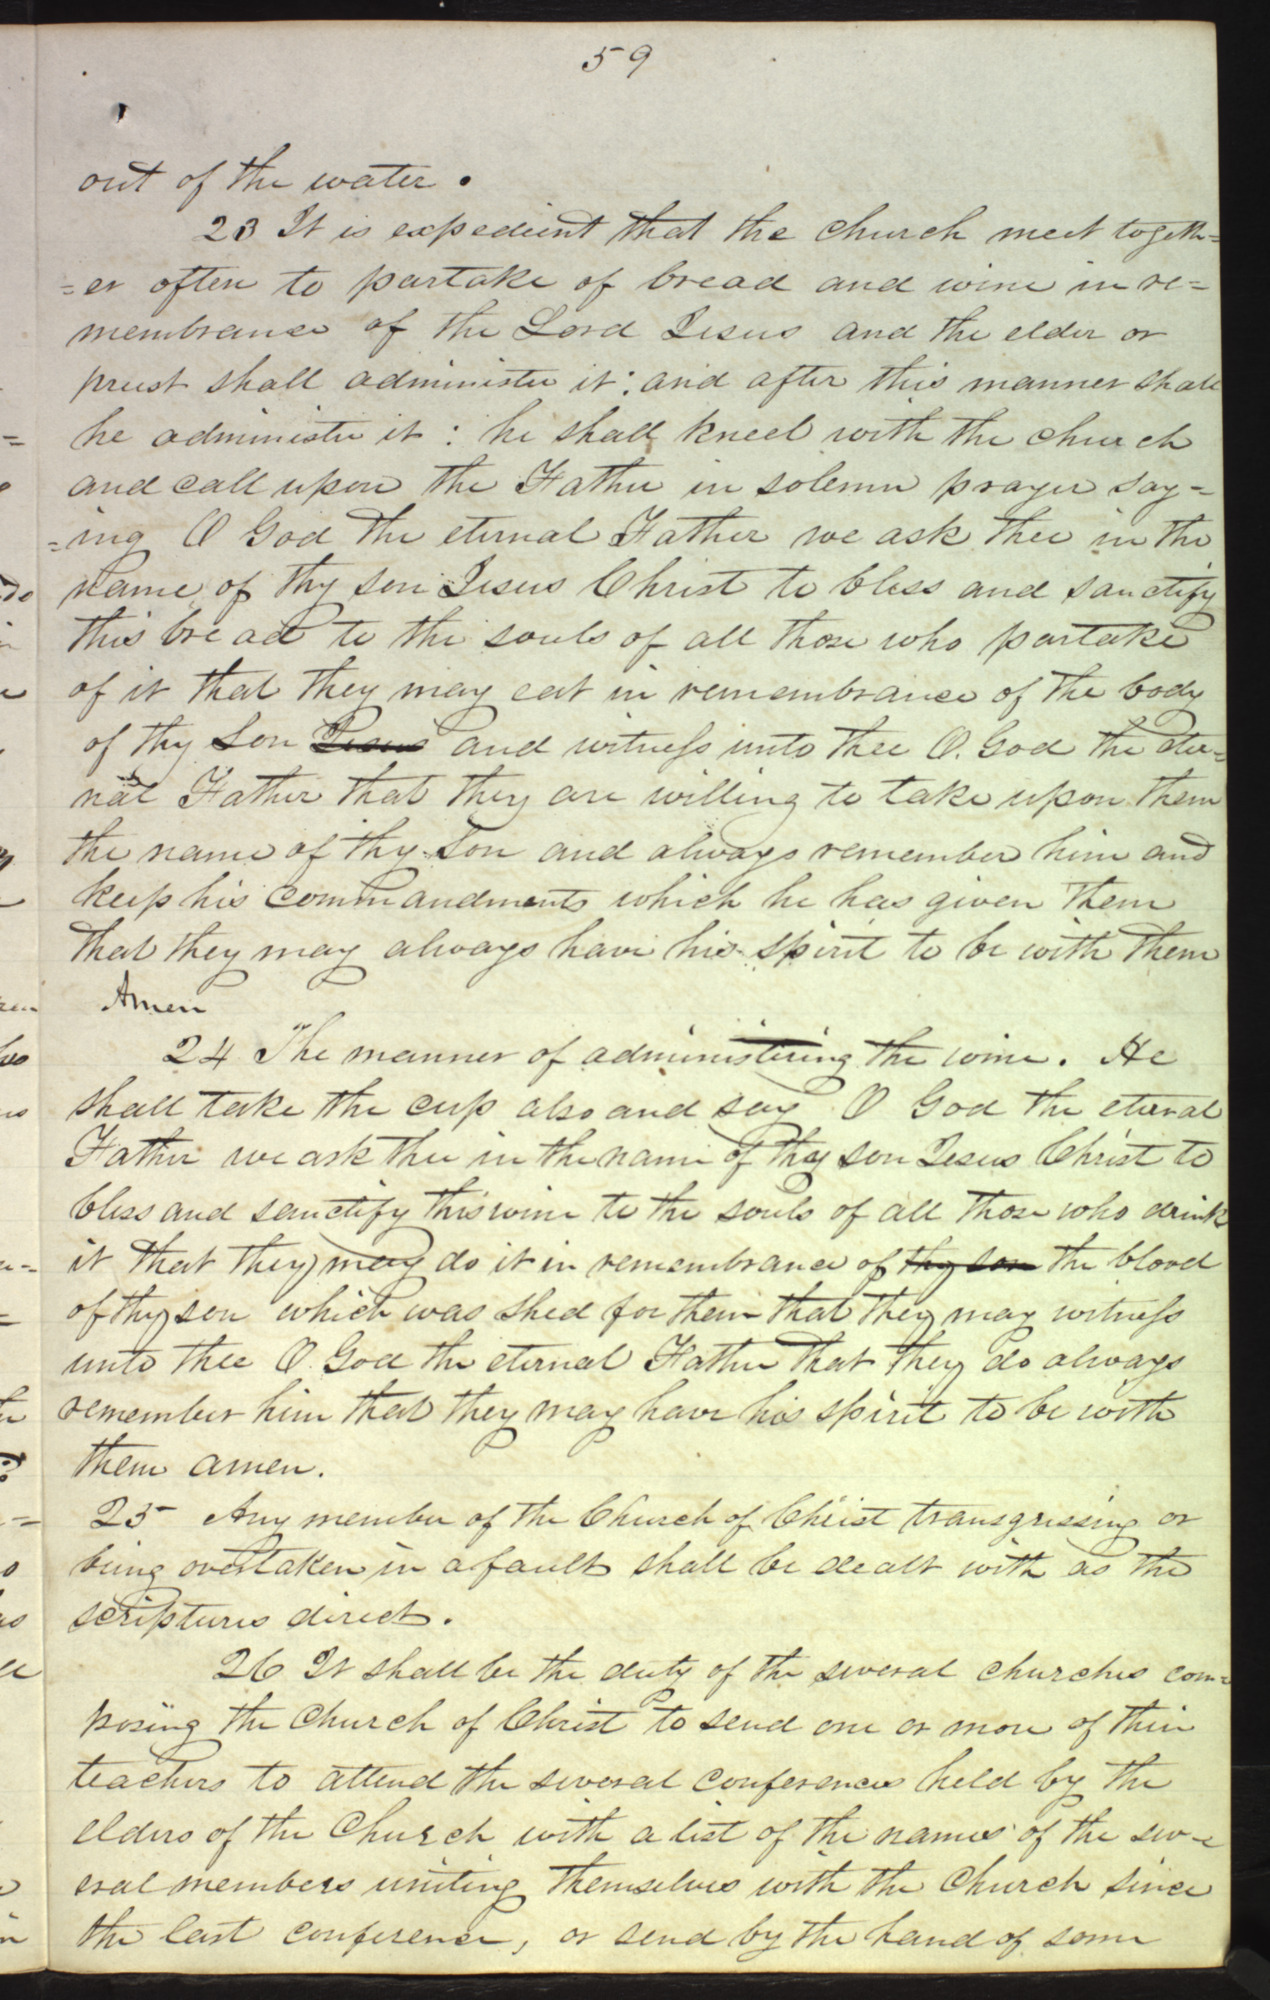 59
out of the water.
23 It is expedient that the church meet togeth=
=er often to partake of bread and wine in re=
membrance of the Lord Jesus and the elder or
priest shall administer it: and after this manner shall
he administer it: he shall kneel with the church
and call upon the Father in solemn prayer say=
=ing O God the eternal Father we ask thee in the
name of thy son Jesus Christ to bless and sanctify
this bread to the souls of all those who partake
of it that they may eat in remembrance of the body
of thy Son Jesus and witness unto thee O. God the eter=
nal Father that they are willing to take upon them
the name of thy Son and always remember him and
keep his commandments which he has given them
that they may always have his spirit to be with them
Amen
24 The manner of administering the wine. He
shall take the cup also and say O God the eternal
Father we ask thee in the name of thy son Jesus Christ to
bless and sanctify this wine to the souls of all those who drink
it that they may do it in remembrance of thy son the blood
of thy son which was shed for them that they may witness
unto thee O. God the eternal Father that they do always
remember him that they may have his spirit to be with
them amen.
25 Any member of the Church of Christ transgressing or
being overtaken in a fault shall be dealt with as the
scriptures direct.
26 It shall be the duty of the several churches com=
posing the Church of Christ to send one or more of their
teachers to attend the several conferences held by the
elders of the Church with a list of the names of the sev=
eral members uniting themselves with the Church since
the last conference, or send by the hand of some